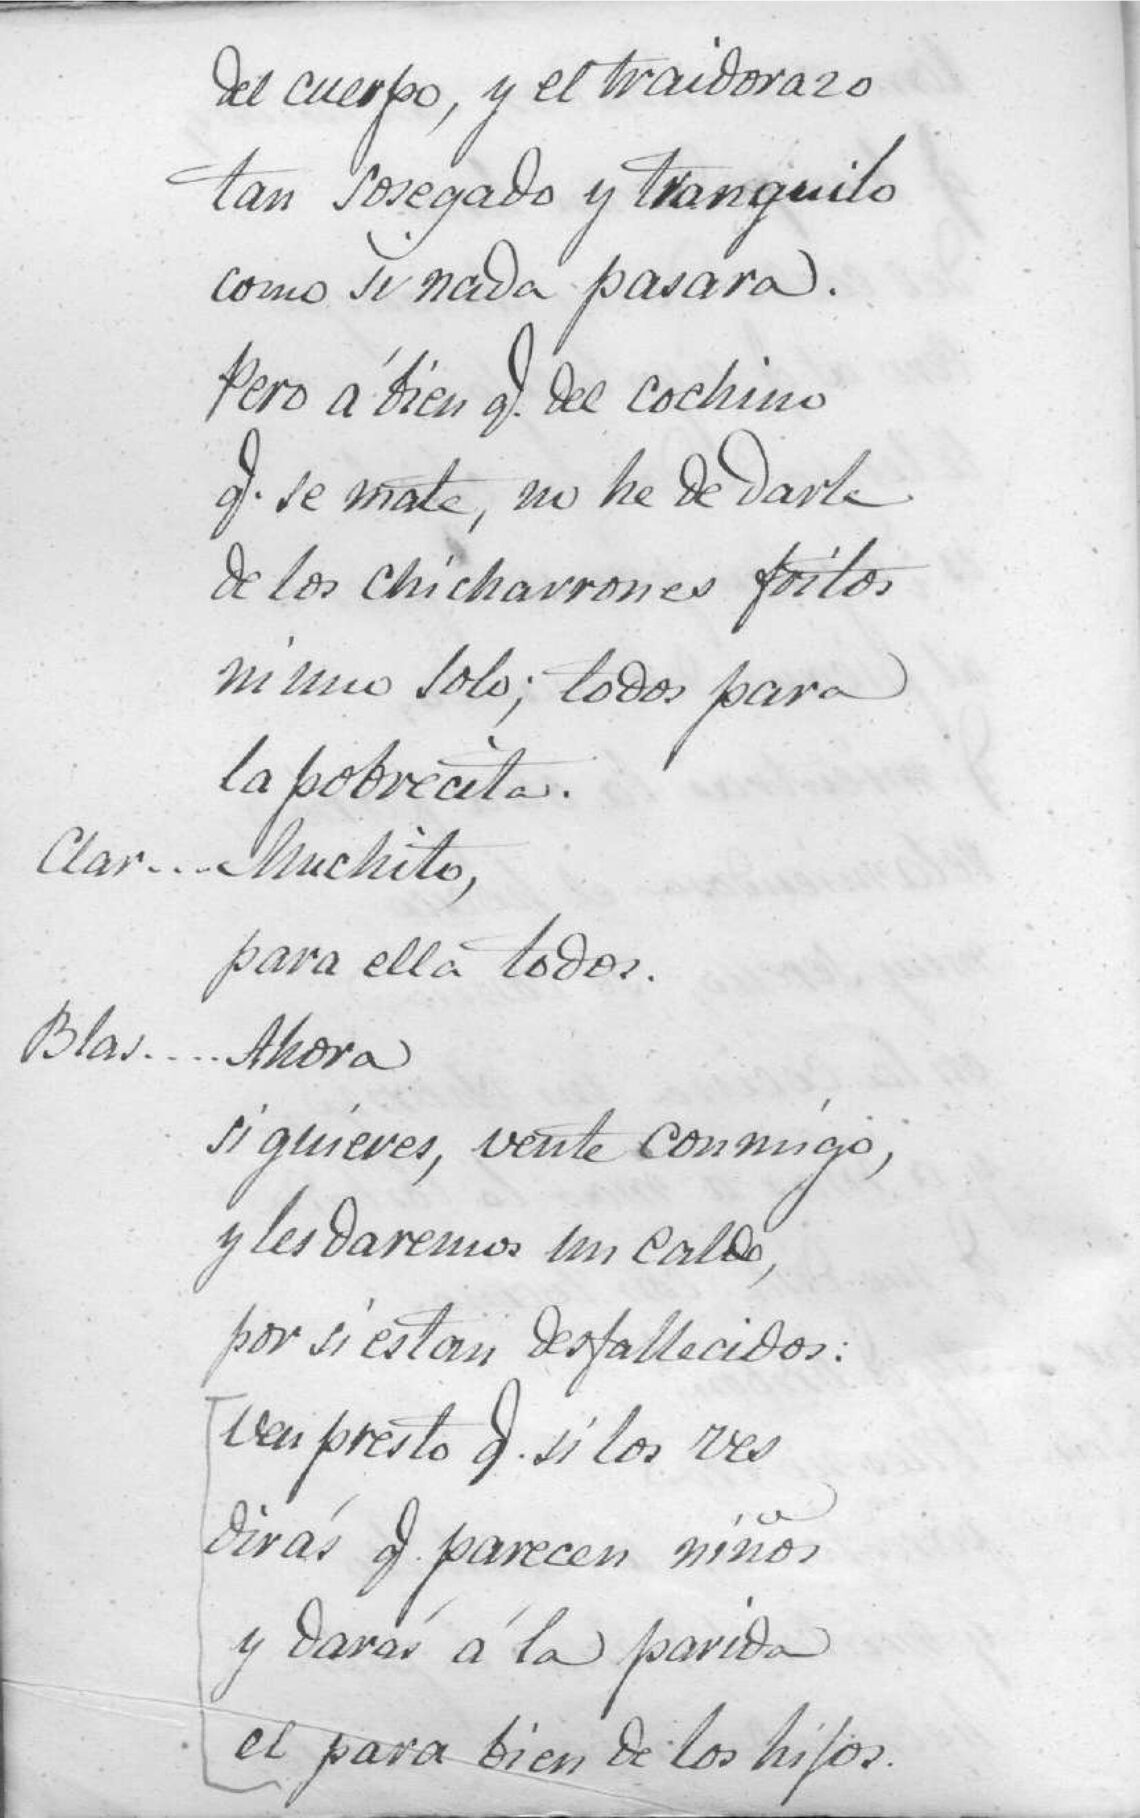 del cuerpo, y el traidorazo
tan sosegado y tranquilo
como si nada pasara.
Pero á bien q.̃ del cochino
q.̃ se mate, no he de darle
de los chicharrones fritos
ni uno solo; todos para
la pobrecita.
Clar.... Muchito,
para ella todos.
Blas.... Ahora
si quieres, vente conmigo,
y les daremos un caldo,
por si estan desfallecidos:
ven presto q.̃ si los ves
dirás q.̃ parecen niños
y darás á la parida
el para bien de los hijos.